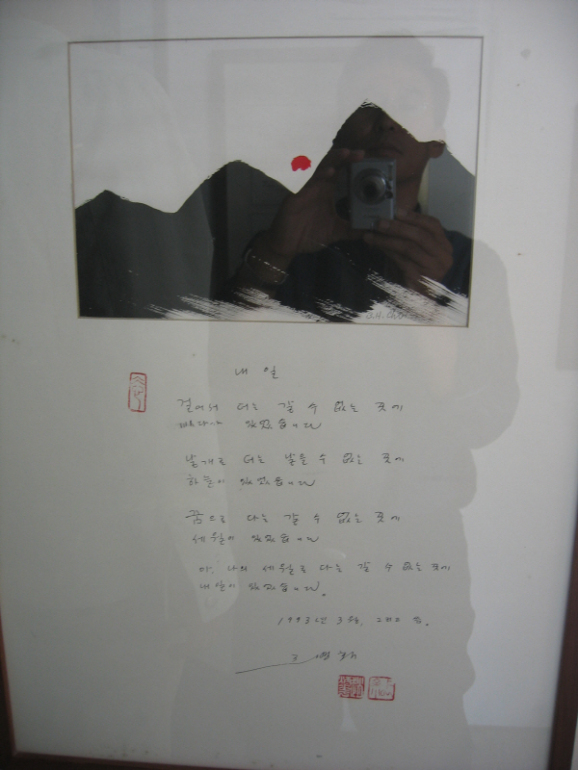 내 일
걸어서 더는 갈 수 없는 곳에
바다가 있었습니다
날개로 더는 날을 수 없는 곳에
하늘이 있었습니다
꿈으로 다는 갈 수 없는 곳에
세월이 있었습니다
아, 나의 세월로 다는 갈 수 없는 곳에
내일이 있었습니다.
1993년 3월,
조병화